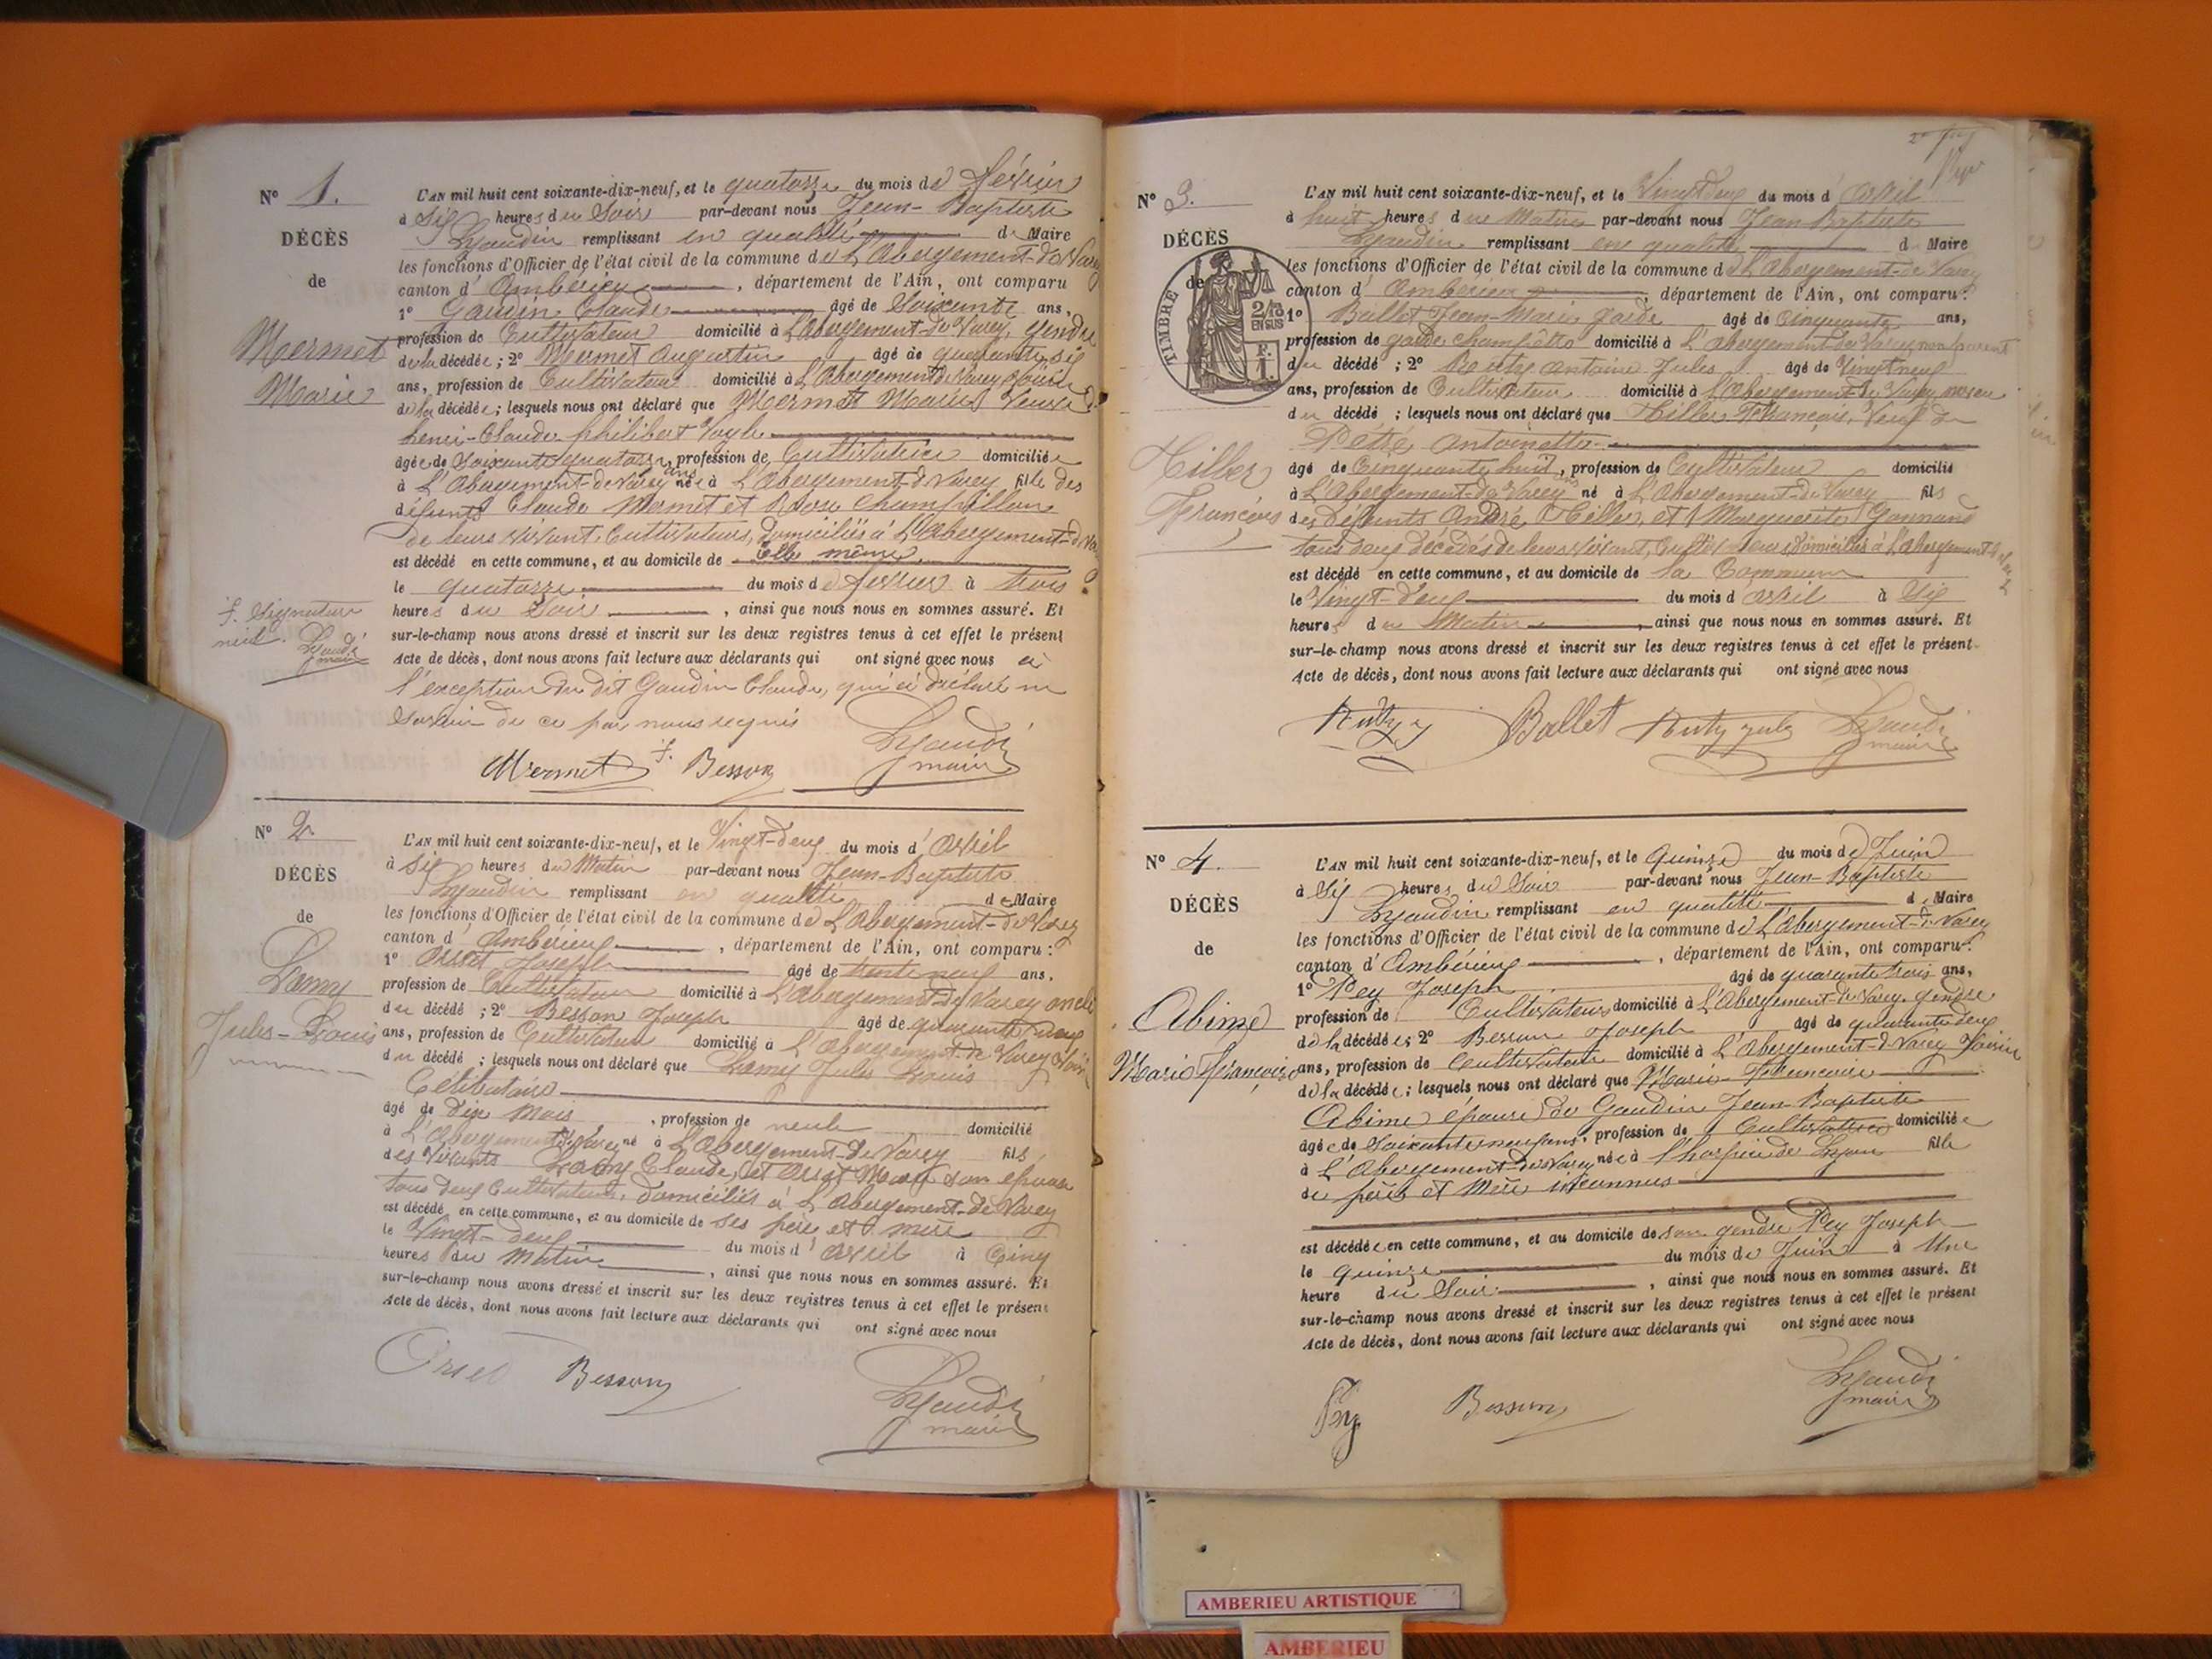 N° 1.
DÉCÈS
de
Mermet
Marie
L'AN mil huit cent soixante-dix-neuf, et le quatorze du mois de Février
à Six heures du Soir par-devant nous Jean-Baptiste
Lyaudin remplissant en qualité de Maire
les fonctions d'Officier de l'état civil de la commune de L'Abergement-de-Varey
canton d'Ambérieu, département de l'Ain, ont comparu
1° Gaudin Claude âgé de Soixante ans,
profession de Cultivateur domicilié à L'Abergement-de-Varey, gendre
de la décédée; 2° Mermet Augustin âgé de quarante six
ans, profession de Cultivateur domicilié à L'Abergement de Varey Voisin
de la décédée; lesquels nous ont déclaré que Mermet Marie Veuve de
henri-Claude philibert
âgée de Soixante quatorze ans, profession de Cultivatrice domiciliée
à L'Abergement-de-Varey née à L'Abergement-de-Varey fille des
défunts Claude Mermet et Rose Champillon
de leurs vivant, Cultivateurs, domiciliés à L'Abergement-de-
est décédé en cette commune, et au domicile de Elle même
le quatorze du mois de février à trois
heures du Soir, ainsi que nous nous en sommes assuré. Et
sur-le-champ nous avons dressé et inscrit sur les deux registres tenus à cet effet le présent
Acte de décès, dont nous avons fait lecture aux déclarants qui ont signé avec nous à
l'exception du dit Gaudin Claude, qui a déclaré ne
Savoir de ce par nous requis
f. Signature
nul. Lyaudi
maire
Mermet f. Besson Lyaudi
maire
N° 2
DÉCÈS
de
Lamy
Jules-Louis
L'AN mil huit cent soixante-dix-neuf, et le Vingt-deux du mois d'Avril
à Six heures du Matin par-devant nous Jean-Baptiste
Lyaudin remplissant en qualité de Maire
les fonctions d'Officier de l'état civil de la commune de L'Abergement-de-Varey
canton d'Ambérieux, département de l'Ain, ont comparu:
1° Orset Joseph âgé de trente neuf ans,
profession de Cultivateur domicilié à L'abergement-de Varey oncle
du décédé; 2° Besson Joseph âgé de quarante deux
ans, profession de Cultivateur domicilié à L'abergement-de Varey Voisin
du décédé; lesquels nous ont déclaré que Lamy Jules Louis
Célibataire
âgé de dix Mois, profession de neule domicilié
à L'Abergement de Varey né à L'Abergement-de Varey fils
des Vivants Lamy Claude, et Orset Mary son épouse
tous deux Cultivateurs, domiciliés à L'Abergement-de Varey
est décédé en cette commune, et au domicile de Ses père et mère
le Vingt-deux du mois d'Avril à Cinq
heures du Matin, ainsi que nous nous en sommes assuré. Et
sur-le-champ nous avons dressé et inscrit sur les deux registres tenus à cet effet le présent
Acte de décès, dont nous avons fait lecture aux déclarants qui ont signé avec nous
Orset Besson Lyaudi
maire
N° 3.
DÉCÈS
de
TIMBRE
2/10
EN SUS
F.
1.
Tiller
François
L'AN mil huit cent soixante-dix-neuf, et le Vingt-deux du mois d'Avril
à huit heures du Matin par-devant nous Jean Baptiste
Lyaudin remplissant en qualité de Maire
les fonctions d'Officier de l'état civil de la commune de L'abergement-de Varey
canton d'Ambérieux, département de l'Ain, ont comparu:
1° Ballet Jean-Marie garde âgé de Cinquante ans,
profession de garde champêtre domicilié à L'abergement de Varey non parent
du décédé; 2° antoine Jules âgé de Vingt neuf
ans, profession de Cultivateur domicilié à L'abergement-de Varey neveu
du décédé; lesquels nous ont déclaré que Tiller François, Veuf de
Pétré antoinette
âgé de Cinquante huit ans, profession de Cultivateur domicilié
à L'Abergement-de Varey né à L'Abergement-de Varey fils
des défunts André Tiller, et Marguerite Gonnand
tous deux décédés de leurs vivant, Cultivateurs domiciliés à L'abergement
est décédé en cette commune, et au domicile de la Commune
le Vingt-deux du mois d'avril à Six
heures du Matin, ainsi que nous nous en sommes assuré. Et
sur-le-champ nous avons dressé et inscrit sur les deux registres tenus à cet effet le présent
Acte de décès, dont nous avons fait lecture aux déclarants qui ont signé avec nous
Ballet Lyaudi
maire
N° 4.
DÉCÈS
de
Abime
Marie Françoise
L'AN mil huit cent soixante-dix-neuf, et le Quinze du mois de Juin
à Six heures du Soir par-devant nous Jean-Baptiste
Lyaudin remplissant en qualité de Maire
les fonctions d'Officier de l'état civil de la commune de L'abergement-de-Varey
canton d'Ambérieux, département de l'Ain, ont comparu:
1° Pey Joseph âgé de quarante trois ans,
profession de Cultivateur domicilié à L'Abergement-de Varey. gendre
de la décédée; 2° Besson Joseph âgé de quarante deux
ans, profession de Cultivateur domicilié à L'Abergement-de Varey Voisin
de la décédée; lesquels nous ont déclaré que Marie-Françoise
Abime épouse de Gaudin Jean-Baptiste
âgée de Soixante neuf ans, profession de Cultivatrice domiciliée
à L'Abergement-de Varey née à l'hospice de Lyon fille
de père et Mère inconnus
est décédée en cette commune, et au domicile de son gendre Pey Joseph
le quinze du mois de Juin à Une
heure du Soir, ainsi que nous nous en sommes assuré. Et
sur-le-champ nous avons dressé et inscrit sur les deux registres tenus à cet effet le présent
Acte de décès, dont nous avons fait lecture aux déclarants qui ont signé avec nous
Pey Besson Lyaudi
maire
AMBERIEU ARTISTIQUE
AMBERIEU